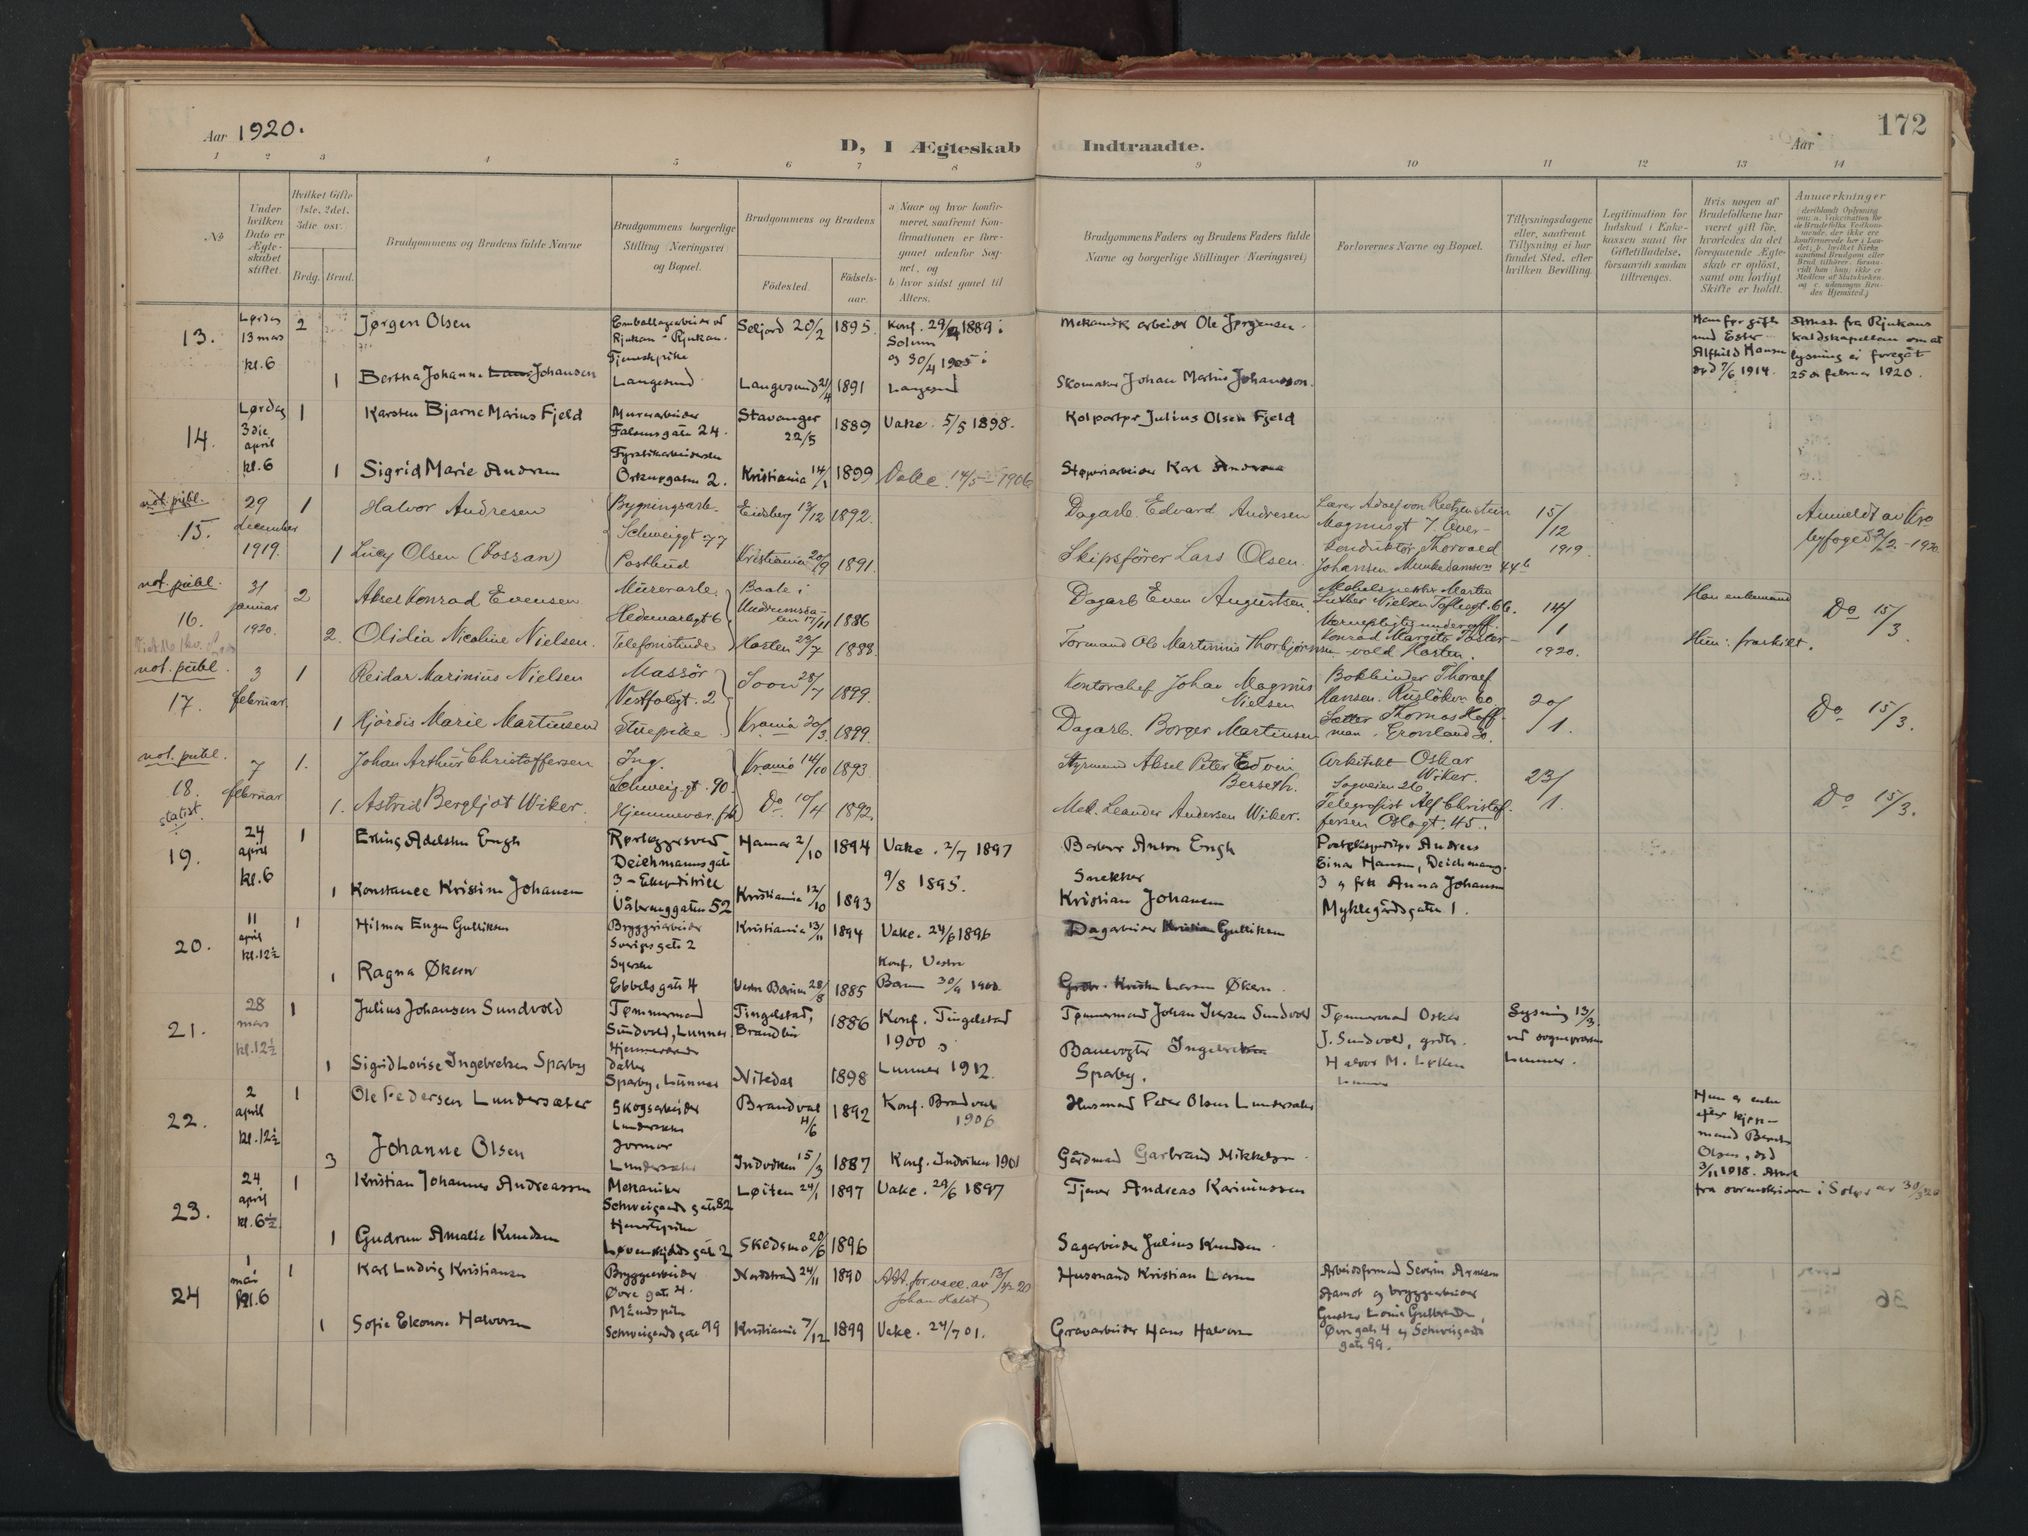 172
Aar 1920.
D, I Ægteskab Indtraadte.
Aar
1 2 3 4 5 6 7 8 9 10 11 12 13 14
No
Under hvilken Dato er Ægteskabet stiftet.
Hvilket Gifte 1ste, 2det, 3die osv.
Brdg. Brud.
Brudgommens og Brudens fulde Navne
Brudgommens borgerlige Stilling (Næringsvei) og Bopæl.
Brudgommens og Brudens
Fødested.
Fødselsaar.
a Naar og hvor konfirmeret, saafremt Konfirmationen er foregaaet udenfor Sognet, og
b hvor sidst gaaet til Alters.
Brudgommens Faders og Brudens Faders fulde Navne og borgerlige Stillinger (Næringsvei)
Forlovernes Navne og Bopæl.
Tillysningsdagene eller, saafremt Tillysning ei har fundet Sted, efter hvilken Bevilling.
Legitimation for Indskud i Enkekassen samt for Giftetilladelse, forsaavidt saadan tiltrænges.
Hvis nogen af Brudefolkene har været gift før, hvorledes da det foregaaende Ægteskab er opløst, samt om lovligt Skifte er holdt.
Anmærkninger
13. Lørdag 13 mars kl. 6
2 Jørgen Olsen
Rjukan - Rjukan.
Seljord 20/2 1895
Mekanisk arbeider Ole Jørgensen.
1 Bertha Johanne Johansen
Langesund
Langesund 1891
Skomaker Johan Martin Johansson.
25de februar 1920.
14. Lørdag 3die april kl. 6
1 Karsten Bjarne Marius Fjeld
Murerarbeider Falsensgate 24.
Stavanger 22/5 1889
Vake. 5/5 1898.
Kolportør Julius Olsen Fjeld
1 Sigrid Marie Andersen
Kristiania 14/1 1899
Vake. 14/5 1906
Karl Andersen
not. publ.
15. 29 december 1919.
1 Halvor Andresen
Bygningsarb. Schweiggt 77
Eidsberg 13/12 1892.
Dagarb. Edvard Andresen
15/12 1919
1 Lucy Olsen (Fossan)
Postbud
Kristiania 20/9 1891.
Skipsfører Lars Olsen.
Johansen Munkedamsv 44b
not. publ.
16. 31 januar 1920.
2 Aksel Konrad Evensen
Murerarb. Hedemarksgt 6
1886
Dagarb Even Augustsen.
14/1 1920.
Han enkemand
Do 15/3.
2. Olidia Nicoline Nielsen.
Telefonistinde
Horten 23/7 1888.
Formand Ole Martinius Thorbjørnsen
Hun: fraskilt.
not. publ.
17. 3 februar.
1 Reidar Marinius Nielsen
Massør Vestfoldgt. 2
Soon 28/7 1899.
Kontorchef Johan Magnus Nielsen
Bokbinder Thoralf Hansen. Ruseløkv. 60
20/1.
Do 15/3.
1 Hjørdis Marie Martinsen
Stuepike
Krania 20/3 1899.
Dagarb. Borger Martinsen
Thomas Hoffman, Grønland 30.
not. publ.
18. 7 februar
statist.
1. Johan Arthur Christoffersen
Ing. Schweig.gt. 90.
Krania 14/10 1893.
Styrmand Aksel Peter Edvin Berseth.
Arkitekt Oskar Wiker. Sogveien 26
23/1.
Do 15/3.
1. Astrid Bergljot Wiker.
Hjemmevær.
Do 10/4 1892.
Mek. Leander Andersen Wiker.
Telegrafist Alf Christoffersen Oslogt. 45.
19. 24 april kl. 6
1 Erling Adelsten Engh
Deichmansgate 3
Hamar 2/10 1894
Vake. 2/7 1897
Barberer Anton Engh
Einar Hansen, Deichmansg. 3 og frk Anna Johansen Myklegårdsgaten 1.
1 Konstance Kristine Johansen
Vålerenggaten 52
Kristiania 12/10 1893
9/8 1895.
Snekker Kristian Johansen
20. 11 april kl. 12½
1 Hilmar Eugen Gulliksen
Bryggeriarbeider Sverigsgate 2
Kristiania 13/11 1894
Vake. 24/6 1896
Dagarbeider Kristian Gulliksen
1 Ragna Økern
Syerske Ebbelsgate 4
Vestre Bærum 28/8 1885
Konf. Vestre Bærum 30/9 1900.
Larsen Økern.
21. 28 mars kl. 12½
1 Julius Johansen Sundvold
Tømmermand Sundvold, Lunner
Tingelstad, Brandbu 1886
Konf. Tingelstad 1900 og
Tømmermand Johan Iversen Sundvold
Tømmermand Oskar J. Sundvold,
Halvor M. Løken Lunner
Lysning 13/3. ved sognepresten Lunner.
1 Sigrid Lovise Ingebretsen Sparby
Hjemmeværende datter Sparby, Lunner
Nitedal 1898
Lunner 1912.
Banevogter Ingebretsen Sparby.
22. 2 april kl. 12½
1 Ole Pedersen Lundersæter
Skogsarbeider Lundersæter
Brandval 4/6 1892
Konf. Brandval 1906
Husmand Peter Olsen Lundersæter
3 Johanne Olsen
Jormor Lundersæter
Indviken 15/3 1887
Konf. Indviken 1901
Gårdmand Garbrand Mikkelsen
Hun er enke efter Kjøpmand Bernt Olsen, død 3/11 1918. Attest fra sorenskriveren i Solør av 30/3 20
23. 24 april kl. 6½
1 Kristian Johannes Andreassen
Mekaniker Schweigaards gate 82
Løiten 24/1 1897
Vake. 29/6 1897
Tjener Andreas Karinussen
1 Gudrun Amalie Knudsen
Løvenskjolds gate 2
Skedsmo 20/6 1896
Sagarbeider Julius Knudsen.
24 1 mai kl. 6
1 Karl Ludvig Kristiansen
Bryggearbeider Øvre gate 4.
Nordstrand 24/11 1890
Johan Holst
Husmand Kristian Larsen
Arbeidsformand Severin Arnesen Aamot og bryggearbeider
Øvre gate 4 og Schweigaards gate 99.
1 Sofie Eleonore Halvorsen
Schweigaards gate 99
Kristiania 7/12 1899
Vake. 24/7 01.
Gravarbeider Hans Halvorsen